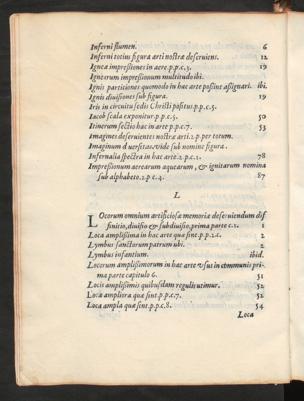 Inferni flumen. 6
Inferni totius figura arti nostræ deseruiens. 12
Igneæ impreſſiones in aere.p.p.c.3. 19
Ignearum impreſſionum multitudo ibi.
Ignis partitiones quomodo in hac arte poſsint aſsignari. ibi.
Ignis diuiſiones ſub figura. 19
Iris in circuitu ſedis Chriſti poſitus p.p.c.5.
Iacob ſcala exponitur p.p.c.5. 50
Itinerum ſectio hac in arte p.p.c.7. 53
Imagines deſeruientes noſtræ arti.2.p.per totum.
Imaginum diuerſitas.vide ſub nomine figura.
Infernalia ſpectra in hac arte.2.p.c.2. 78
Impreſſionum aerearum aquearum, & ignitarum nomina
ſub alphabeto.2.p.c.4. 87
L
LOcorum omnium artificioſæ memoriæ deſeruiendum dif
finitio,diuiſio & ſubdiuiſio,prima parte c.1. 1
Loca ampliſsima in hac arte quæ ſint p.p.2.c. 2
Lymbus ſanctorum patrum ubi. 2
Lymbus infantium. ibid.
Locorum ampliſsimorum in hac arte uſus in communis pri
ma parte capitulo 6. 51
Locis ampliſsimis quibuſdam reguliſ utimur. 52
Loca ampliora quæ ſint p.p.c.7. 52
Loca ampla quæ ſint p.p.c.8. 54
Loca